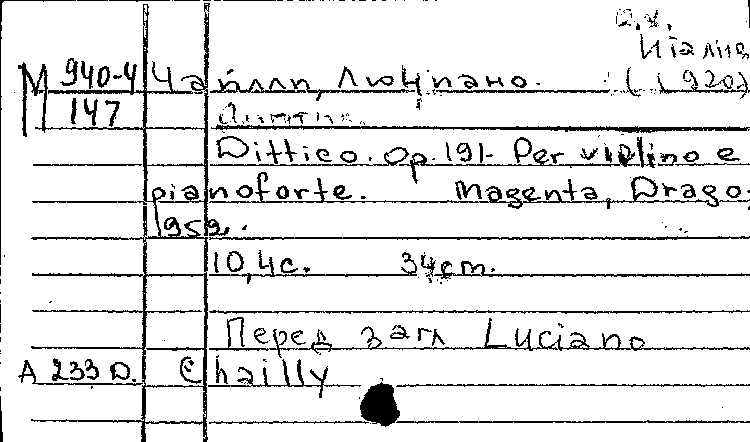 Италия
М 940-4 Чайлли, Лючиано. (1920)
147
Dittico. Op. 191. Per violino e
pianoforte. Magenta, Drago,
1959.
10,4с. 34cm.
Перед загл Luciano
А 233 D. Chailly